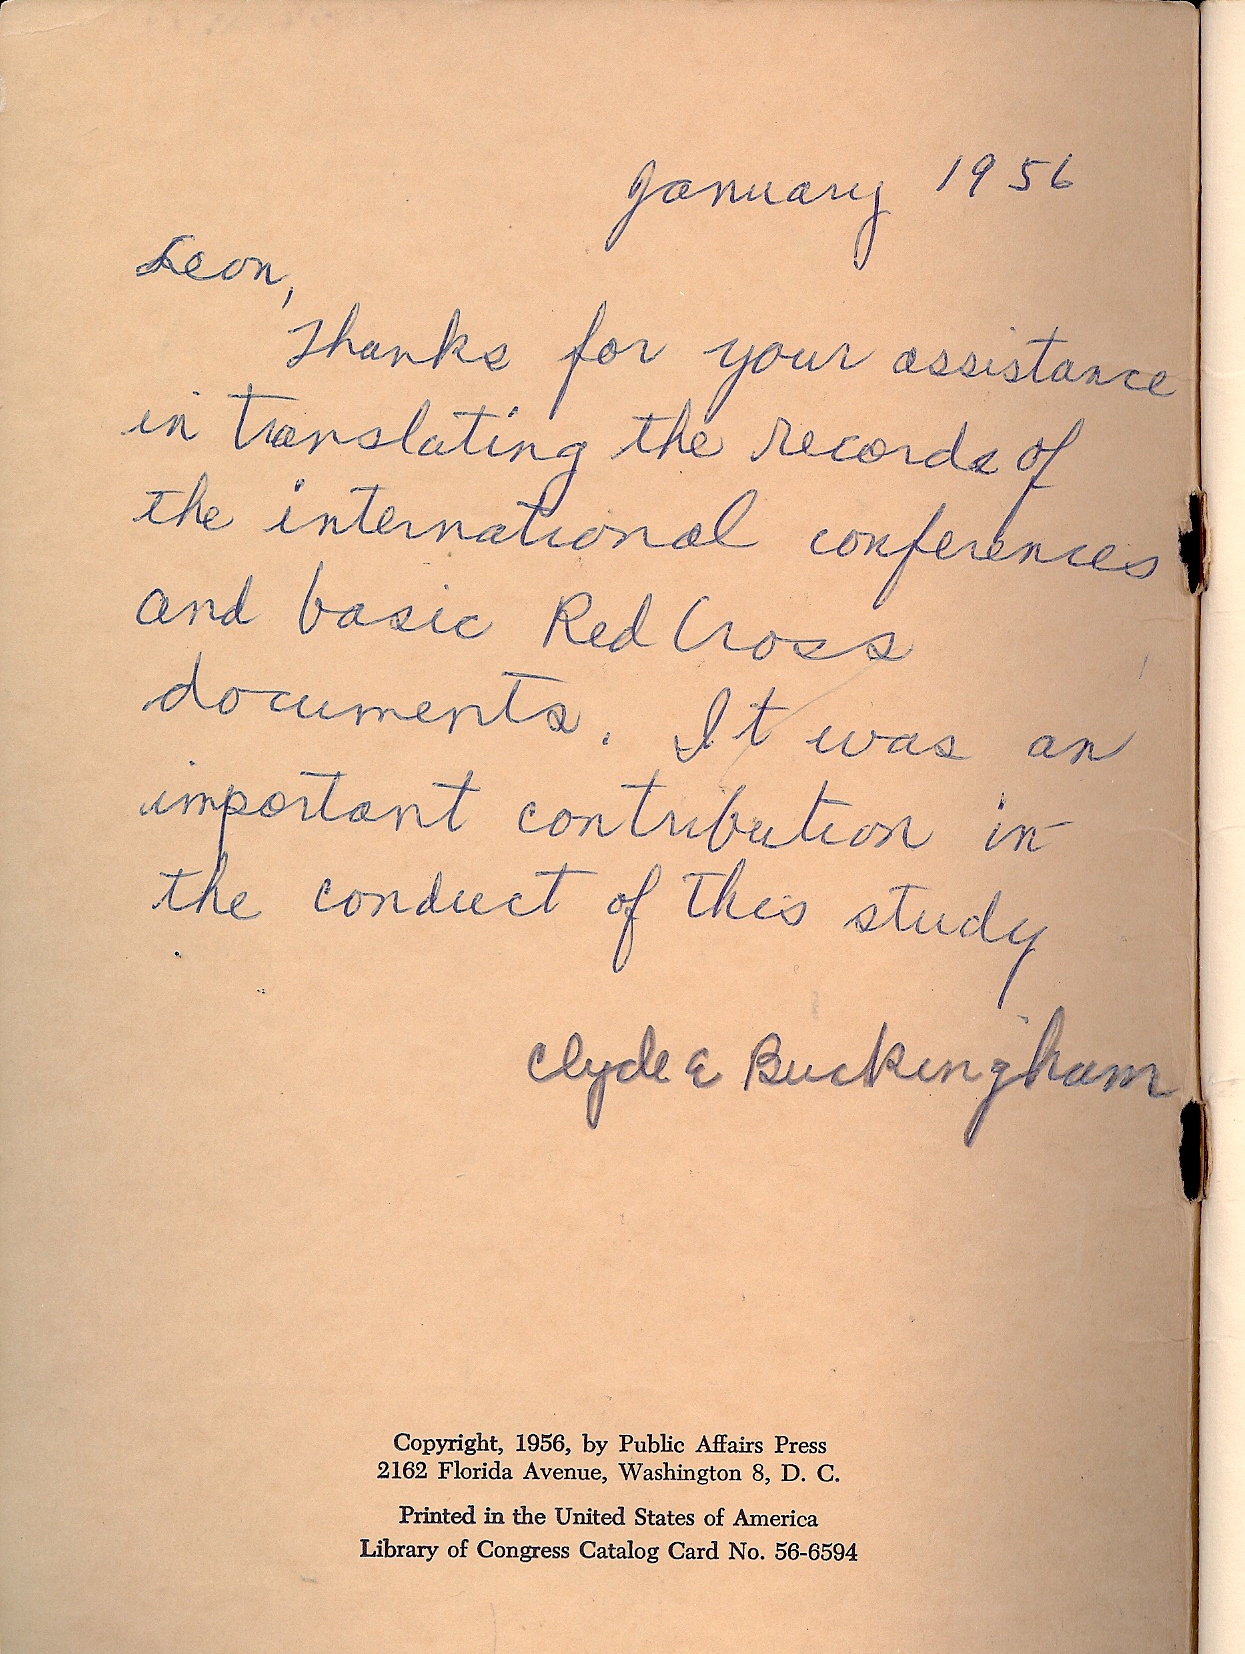 January 1956
Leon,
Thanks for your assistance
in translating the records of
the international conferences
and basic Red Cross
documents. It was an
important contribution in
the conduct of this study
Clyde E Buckingham
Copyright, 1956, by Public Affairs Press
2162 Florida Avenue, Washington 8, D. C.
Printed in the United States of America
Library of Congress Catalog Card No. 56-6594